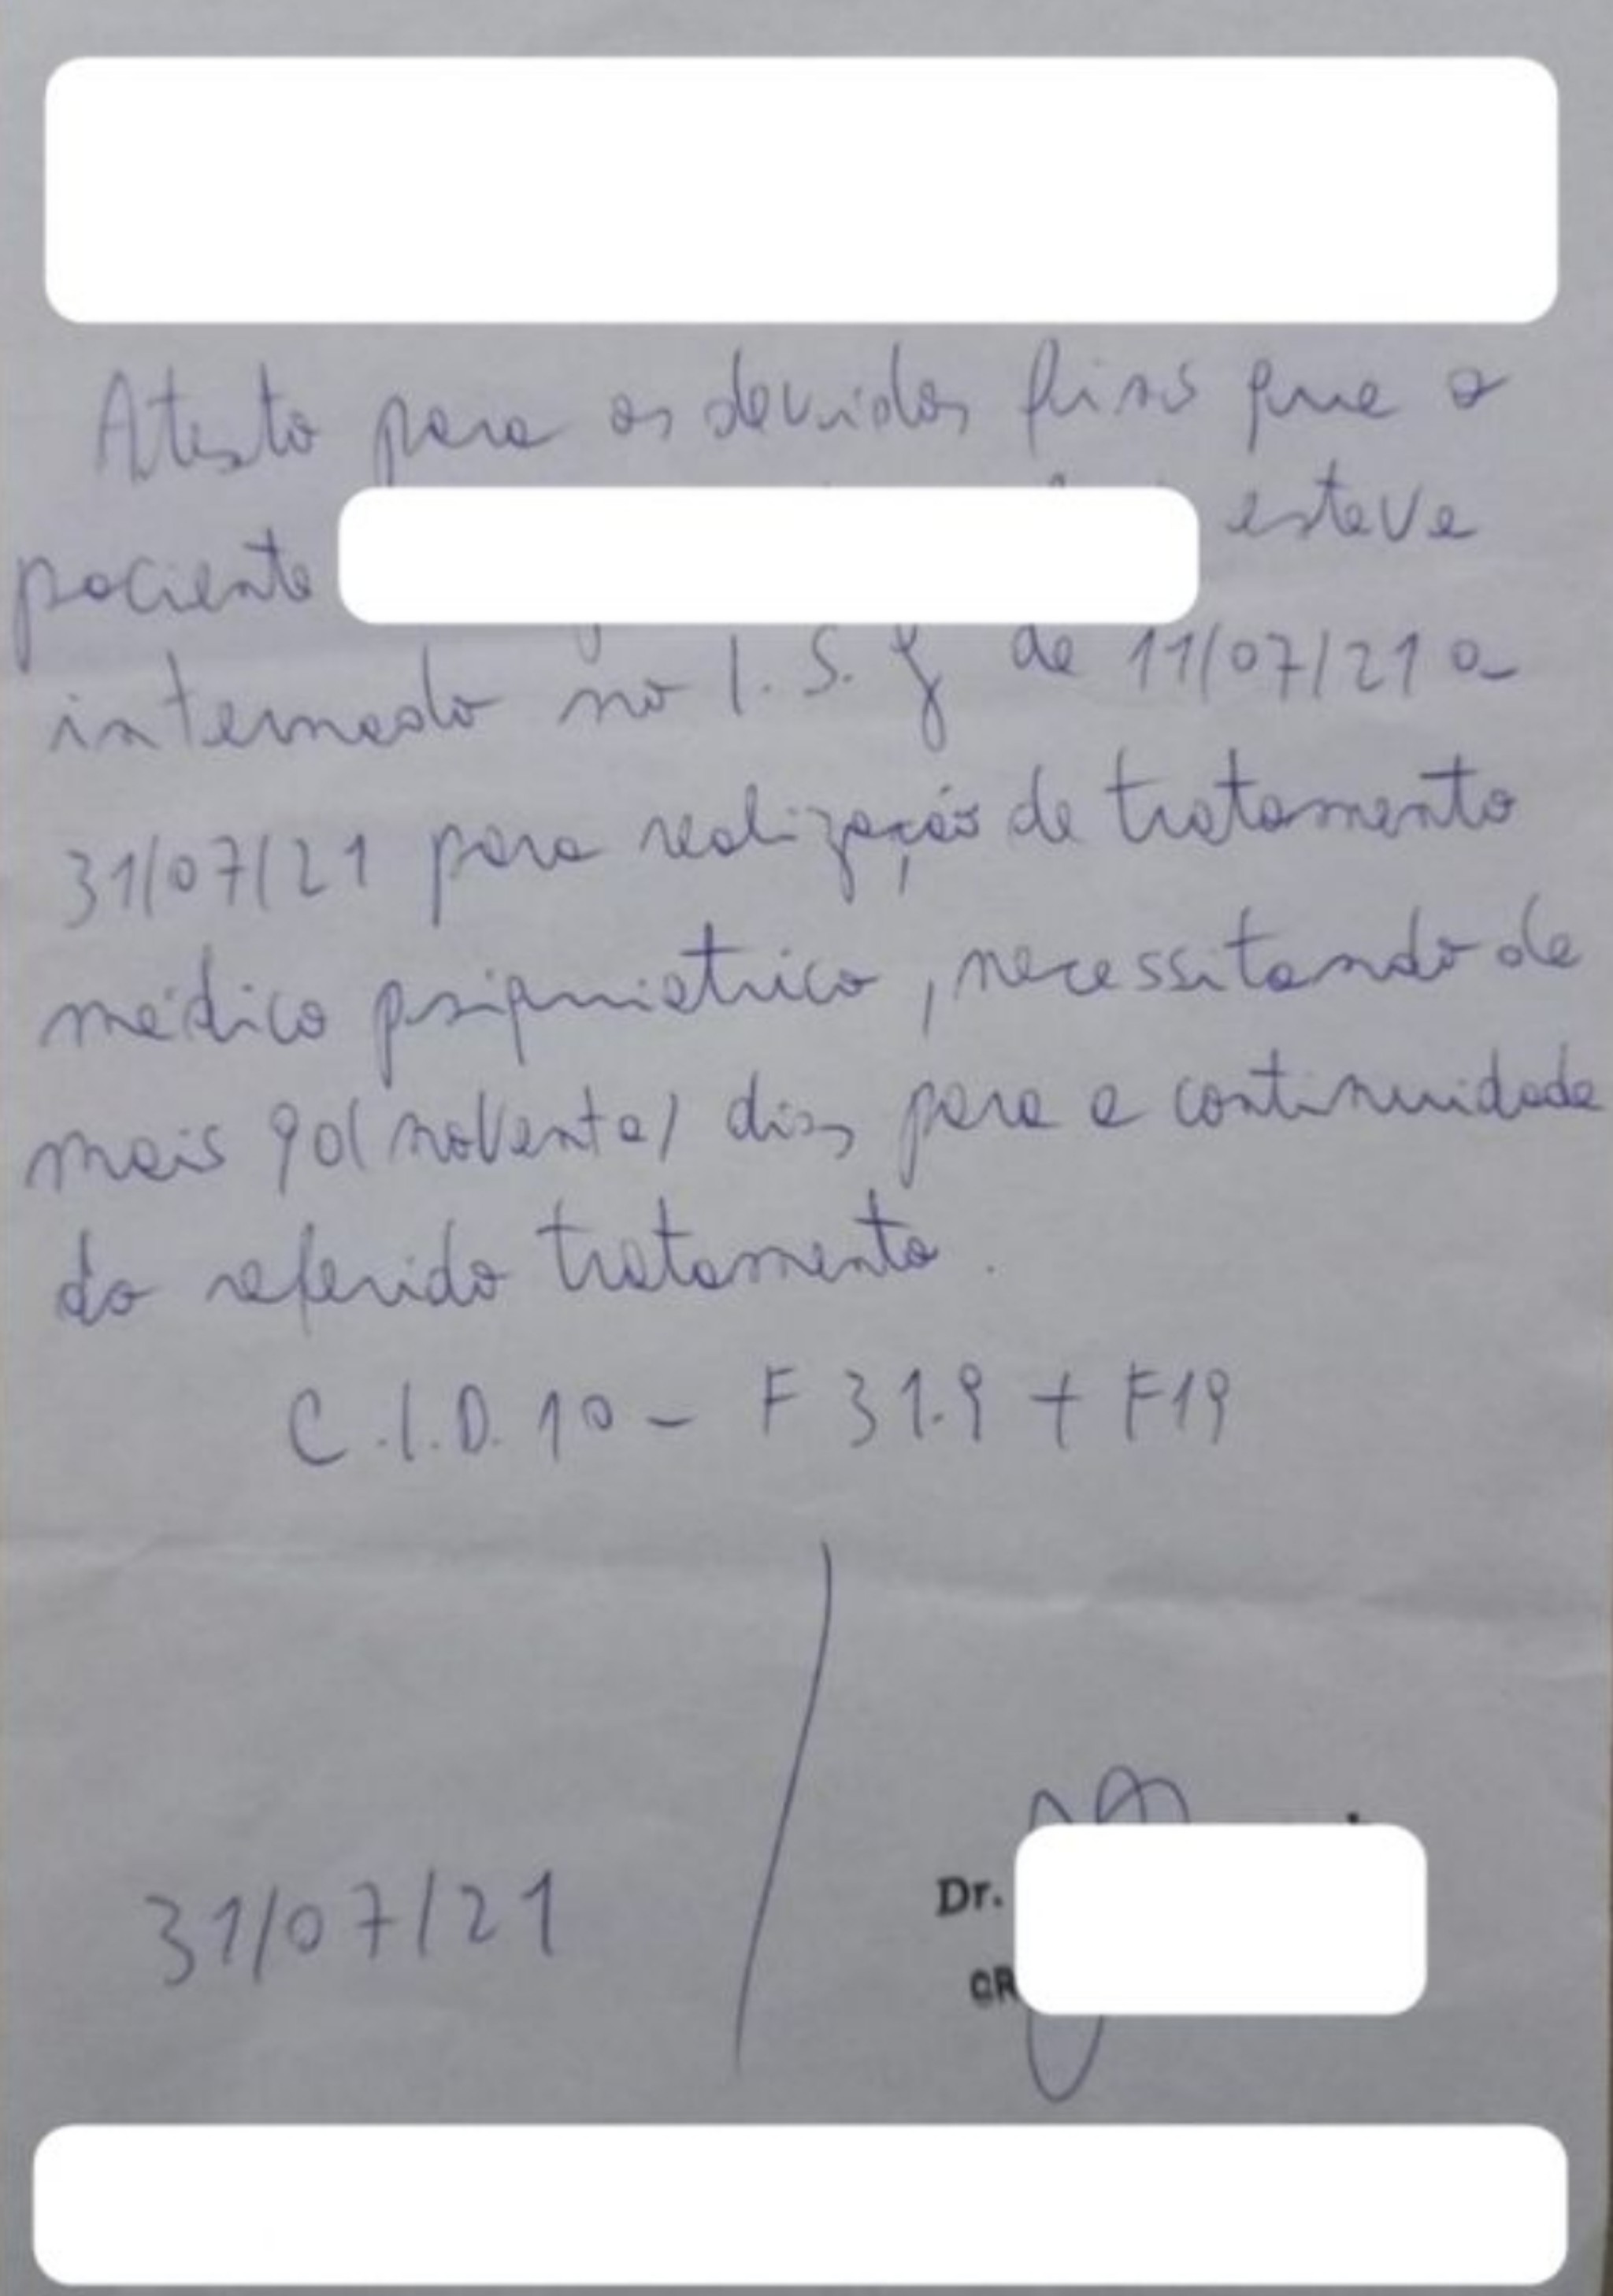 Atesto para os devidos fins que o
paciente esteve
internado no I. S. J de 11/07/21 a
31/07/21 para realização de tratamento
médico psiquiatrico, necessitando de
mais 90 (noventa) dias para a continuidade
do referido tratamento.
C.I.D. 10 - F 31.9 + F19
31/07/21
Dr.
CR